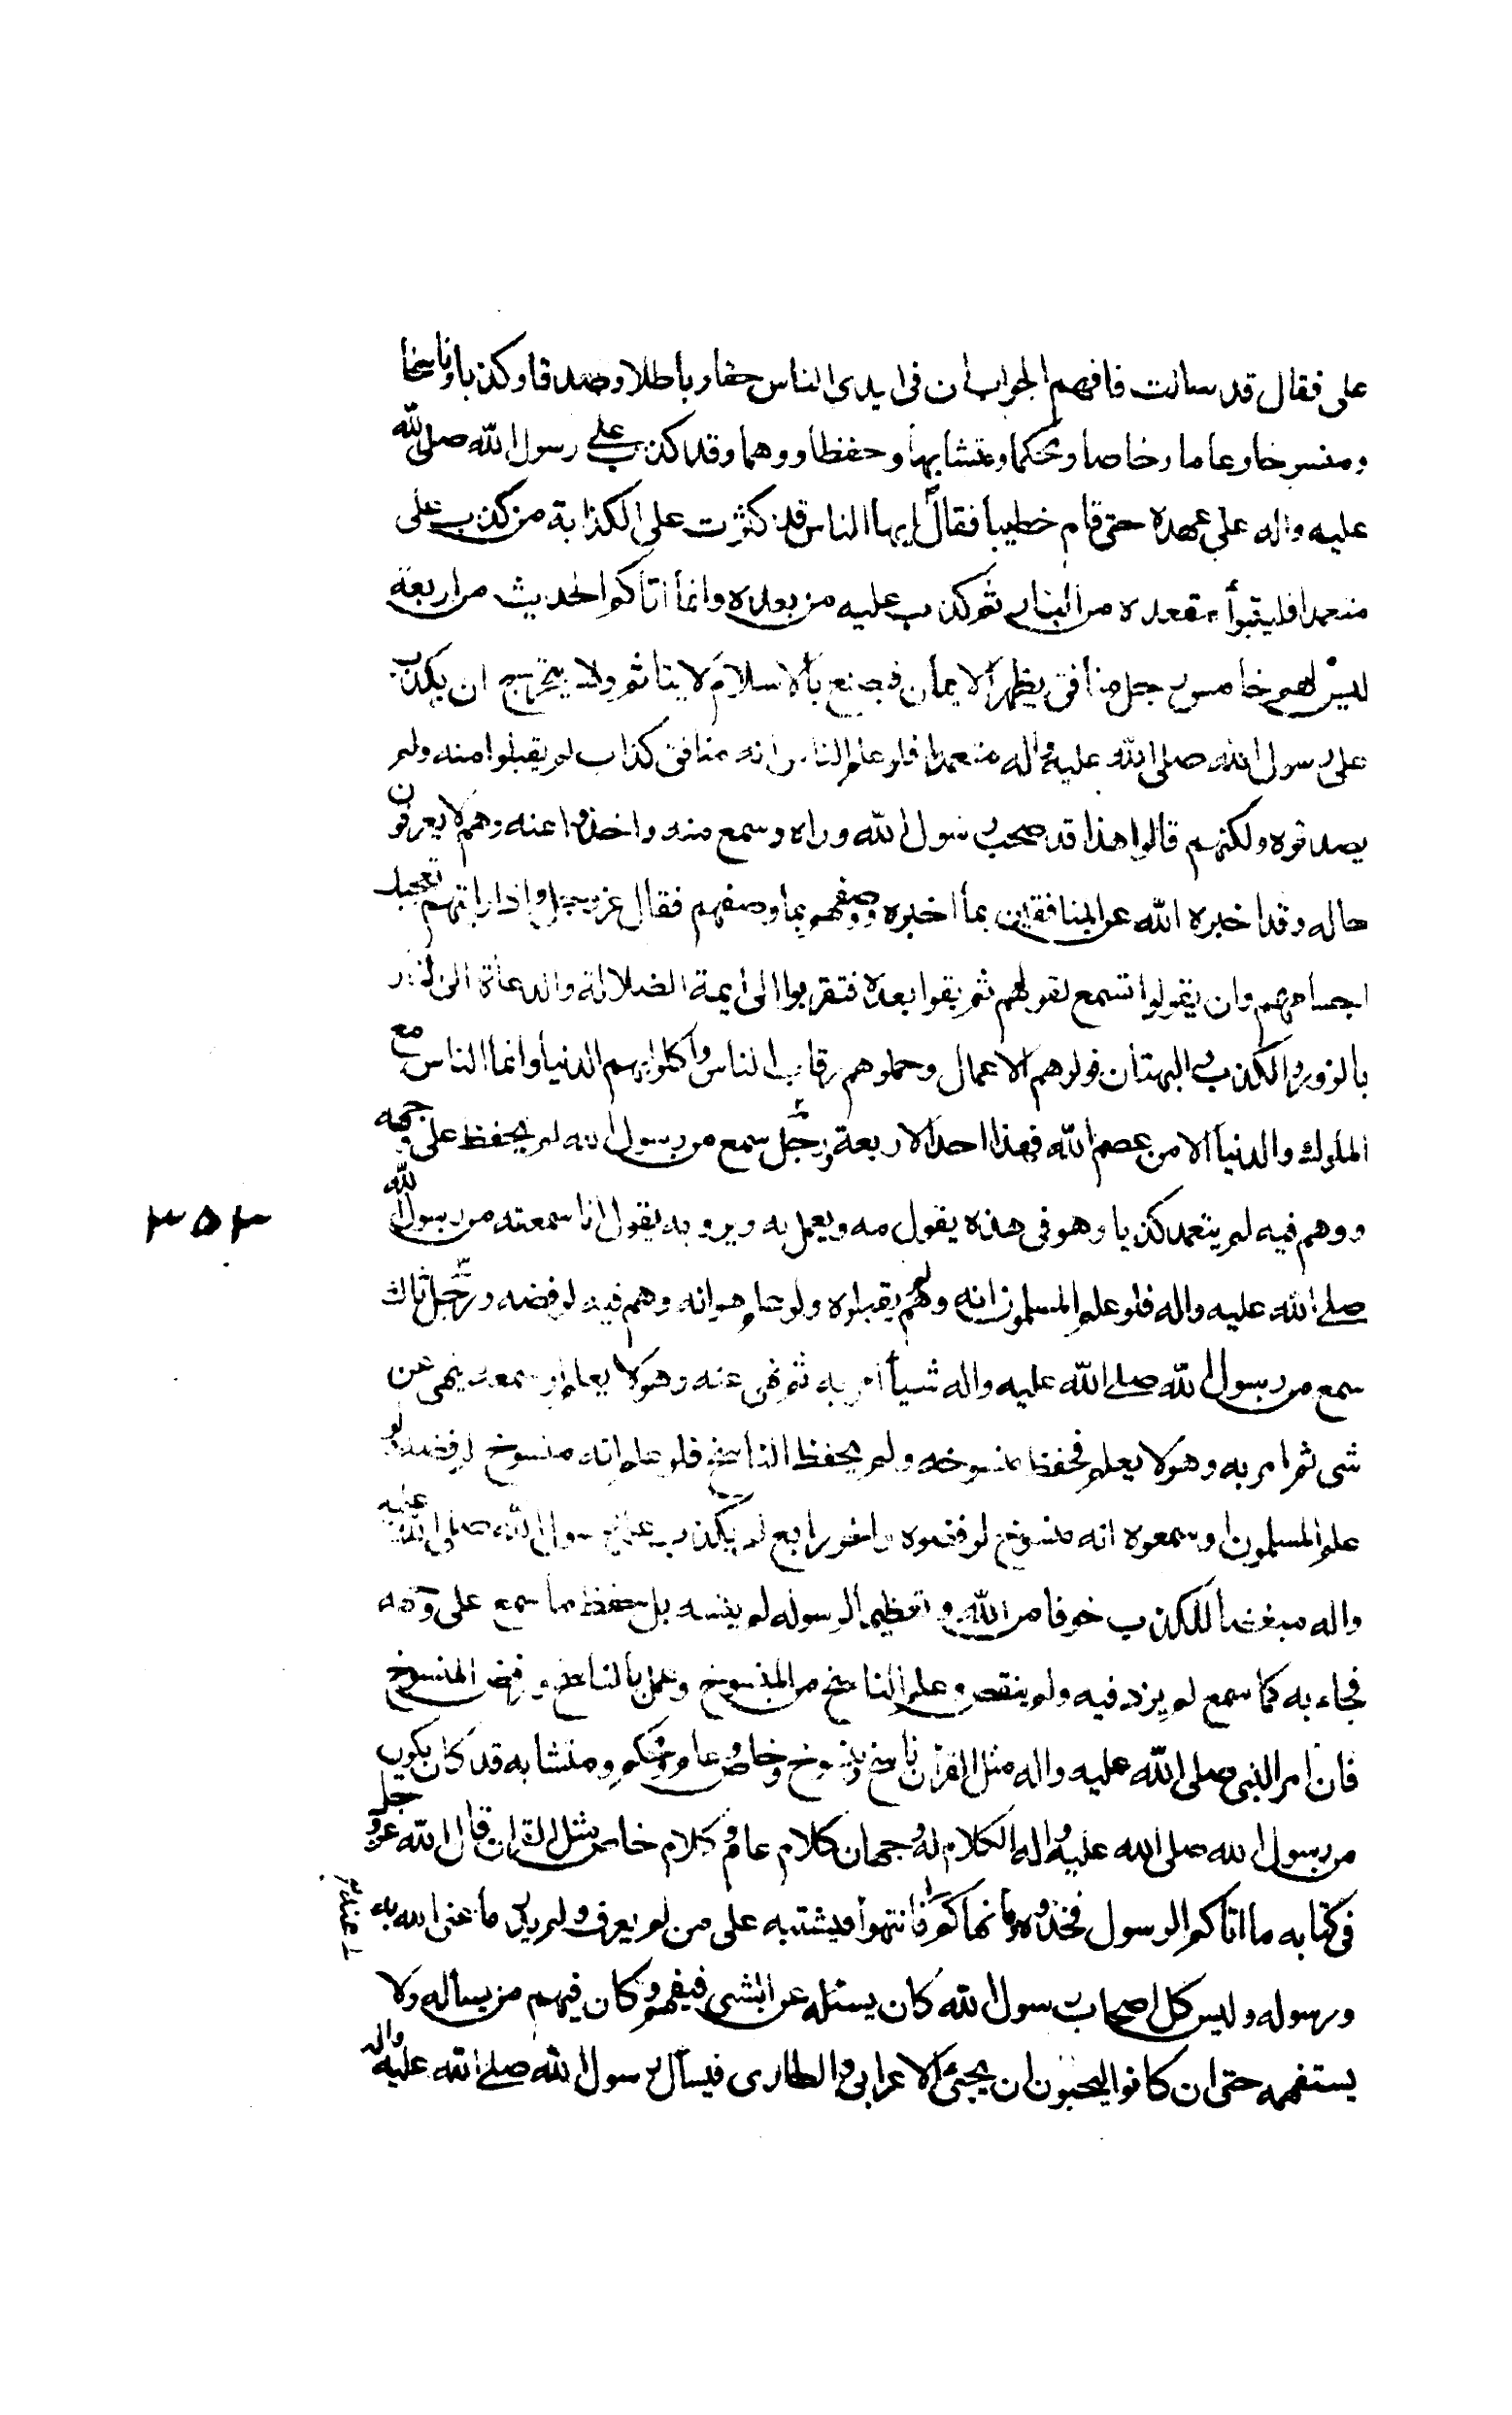 على فقال قد سالت فافهم الجواب ان فى ايدى الناس حقا و باطلا و صدقا و كذبا و ناسخا
و منسوخا و عاما و خاصا و محكما و متشابها و حفظا و وهما و قد كذب على رسول الله صلى الله
عليه واله على عهده حتى قام خطيبا فقال ايها الناس قد كثرت على الكذابة من كذب على
متعمدا فليتبوأ مقعده من النار ثم كذب عليه من بعده وانما اتاكم الحديث من اربعة
ليس لهم خامس رجل منافق يظهر الايمان فيصنع بالاسلام لا يتاثم ولا يتحرج ان يكذب
على رسول الله صلى الله عليه و اله متعمدا فلو علم الناس انه منافق كذاب لم يقبلوا منه ولم
يصدقوه ولكنهم قالوا هذا قد صحب رسول الله وراه و سمع منه واخذوا عنه وهم لا يعرفون
حاله وقد اخبره الله عن المنافقين بما اخبره ووصفهم بما وصفهم فقال عز و جل و اذا رايتهم تعجبك
اجسامهم وان يقولوا تسمع لقولهم ثم بقوا بعده فتقربوا الى ايمة الضلالة والدعاة الى النار
بالزور والكذب و البهتان فولوهم الاعمال وحملوهم رقاب الناس واكلوا بهم الدنيا وانما الناس مع
الملوك والدنيا الا من عصم الله فهذا احد الاربعة ورجل سمع من رسول الله لم يحفظ على وجهه
ووهم فيه لم يتعمد كذبا وهو فى هذه يقول مه ويعمل به ويرويه يقول انا سمعته من رسول الله
٣٥٣
صلى الله عليه واله فلو علم المسلمون انه وهم لم يقبلوه ولو علم هو انه وهم فيه لرفضه ورجل ثالث
سمع من رسول الله صلى الله عليه واله شيأ امر به ثم نهى عنه وهو لا يعلم او سمعه ينهى عن
شى ثم امر به وهو لا يعلم فحفظ منسوخه ولم يحفظ الناسخ فلو علم انه منسوخ لرفضه ولو
علم المسلمون او سمعوه انه منسوخ لرفضوه واخر رابع لم يكذب على رسول الله صلى الله عليه
واله مبغضا للكذب خوفا من الله و تعظيما لرسوله لم ينسه بل حفظ ما سمع على وجهه
فجاء به كما سمع لم يزد فيه ولم ينقص وعلم الناسخ من المنسوخ وعمل بالناسخ ورفض المنسوخ
فان امر النبى صلى الله عليه واله مثل القران ناسخ و منسوخ و خاص و عام و محكم و متشابه قد كان يكون
من رسول الله صلى الله عليه و اله الكلام له وجهان كلام عام و كلام خاص مثل القران قال الله عز و جل
فى كتابه ما اتاكم الرسول فخذوه وما نهاكم عنه فانتهوا فيشتبه على من لم يعرف ولم يدر ما عنى الله به
ورسوله وليس كل اصحاب رسول الله كان يسئله عن الشى فيفهم و كان فيهم من يسأله ولا
يستفهمه حتى ان كانوا ليحبون ان يجئ الاعرابى و الطارى فيسأل رسول الله صلى الله عليه واله